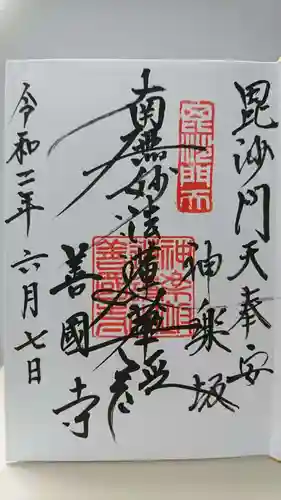 毘沙門天奉安
神楽坂
毘沙門天
南無妙法蓮華経
善國寺
令和二年六月七日